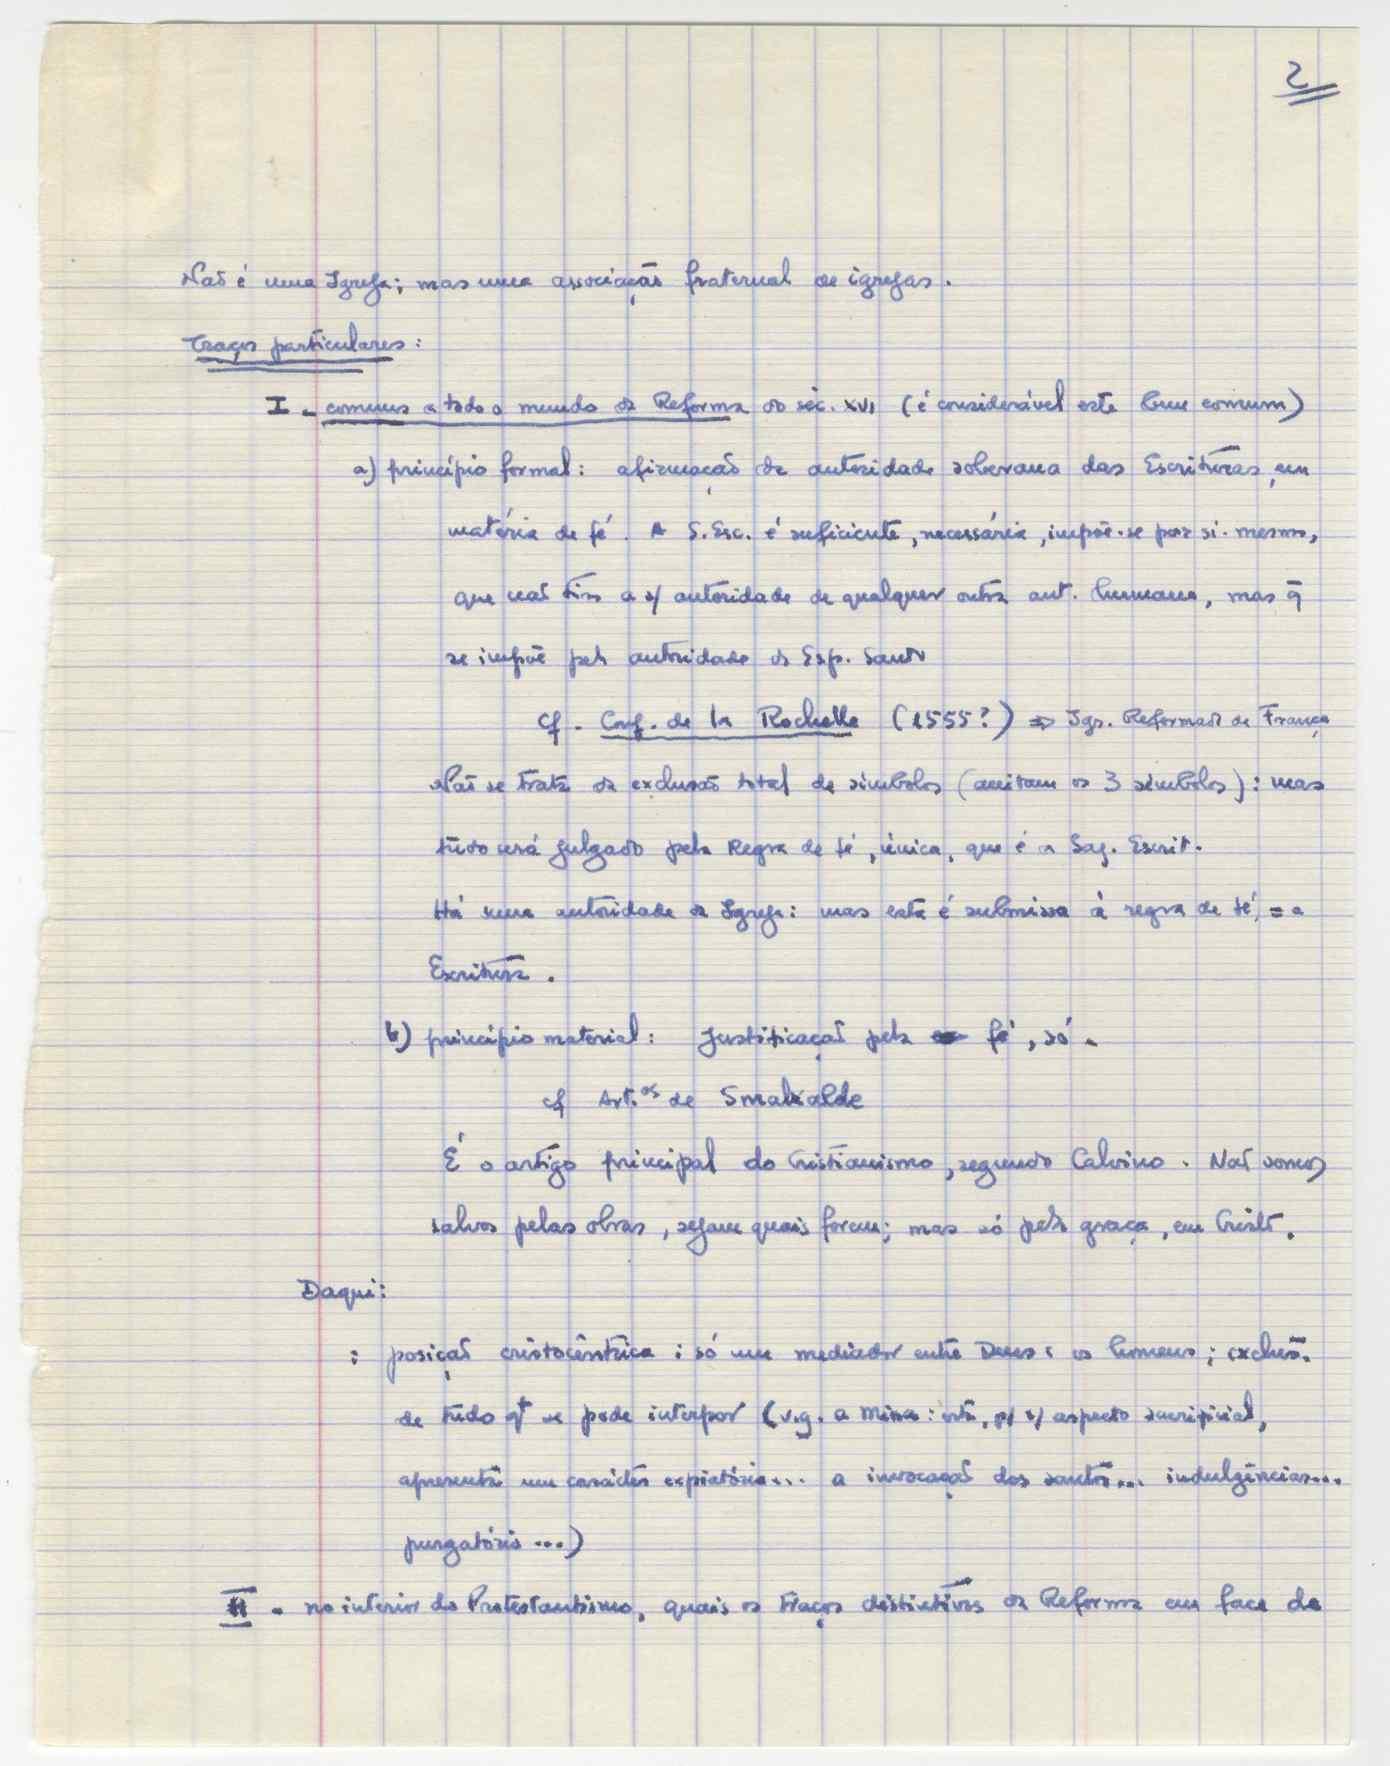 2
Não é uma Igreja; mas uma associação fraternal de igrejas.
Traços particulares:
I - comuns a todo o mundo da Reforma do séc. XVI (é considerável este bem comum)
a) princípio formal: afirmação da autoridade soberana das Escrituras, em
matéria de fé. A S. Esc. é suficiente, necessária, impõe-se por si mesmo,
que não tira a s/ autoridade de qualquer outra aut. humana, mas q̄
se impõe pela autoridade do Esp. Santo
cf. Conf. de la Rochelle (1555?) => Igr. Reformada de França
Não se trata da exclusão total de símbolos (aceitam os 3 símbolos): mas
tudo será julgado pela Regra de fé, única, que é a Sag. Escrit.
Há uma autoridade da Igreja: mas esta é submissa à regra de fé, = a
Escritura.
b) princípio material: Justificação pela fé, só.
cf Art.os de Smalkalde
É o artigo principal do Cristianismo, segundo Calvino. Não somos
salvos pelas obras, sejam quais forem; mas só pela graça, em Cristo.
Daqui:
: posição cristocêntrica: só um mediador entre Deus e os homens; exclusão
de tudo qt se pode interpor (v.g. a missa: esta, p/ s/ aspecto sacrificial,
apresenta um carácter expiatório... a invocação dos santos... indulgências...
purgatório...)
II - no interior do Protestantismo, quais os traços distintivos da Reforma em face do